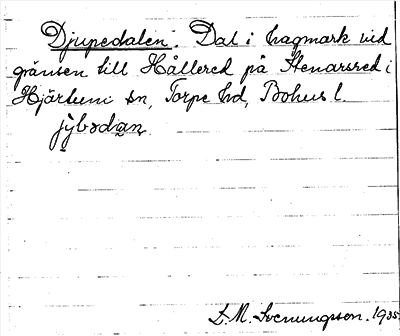 Djupedalen. Dal i hagmark vid
gränsen till Hållered på Stenarsred i
Hjärtums sn, Torpe hd, Bohus l.
jỳbədàn
S. M. Svenungsson. 1935.